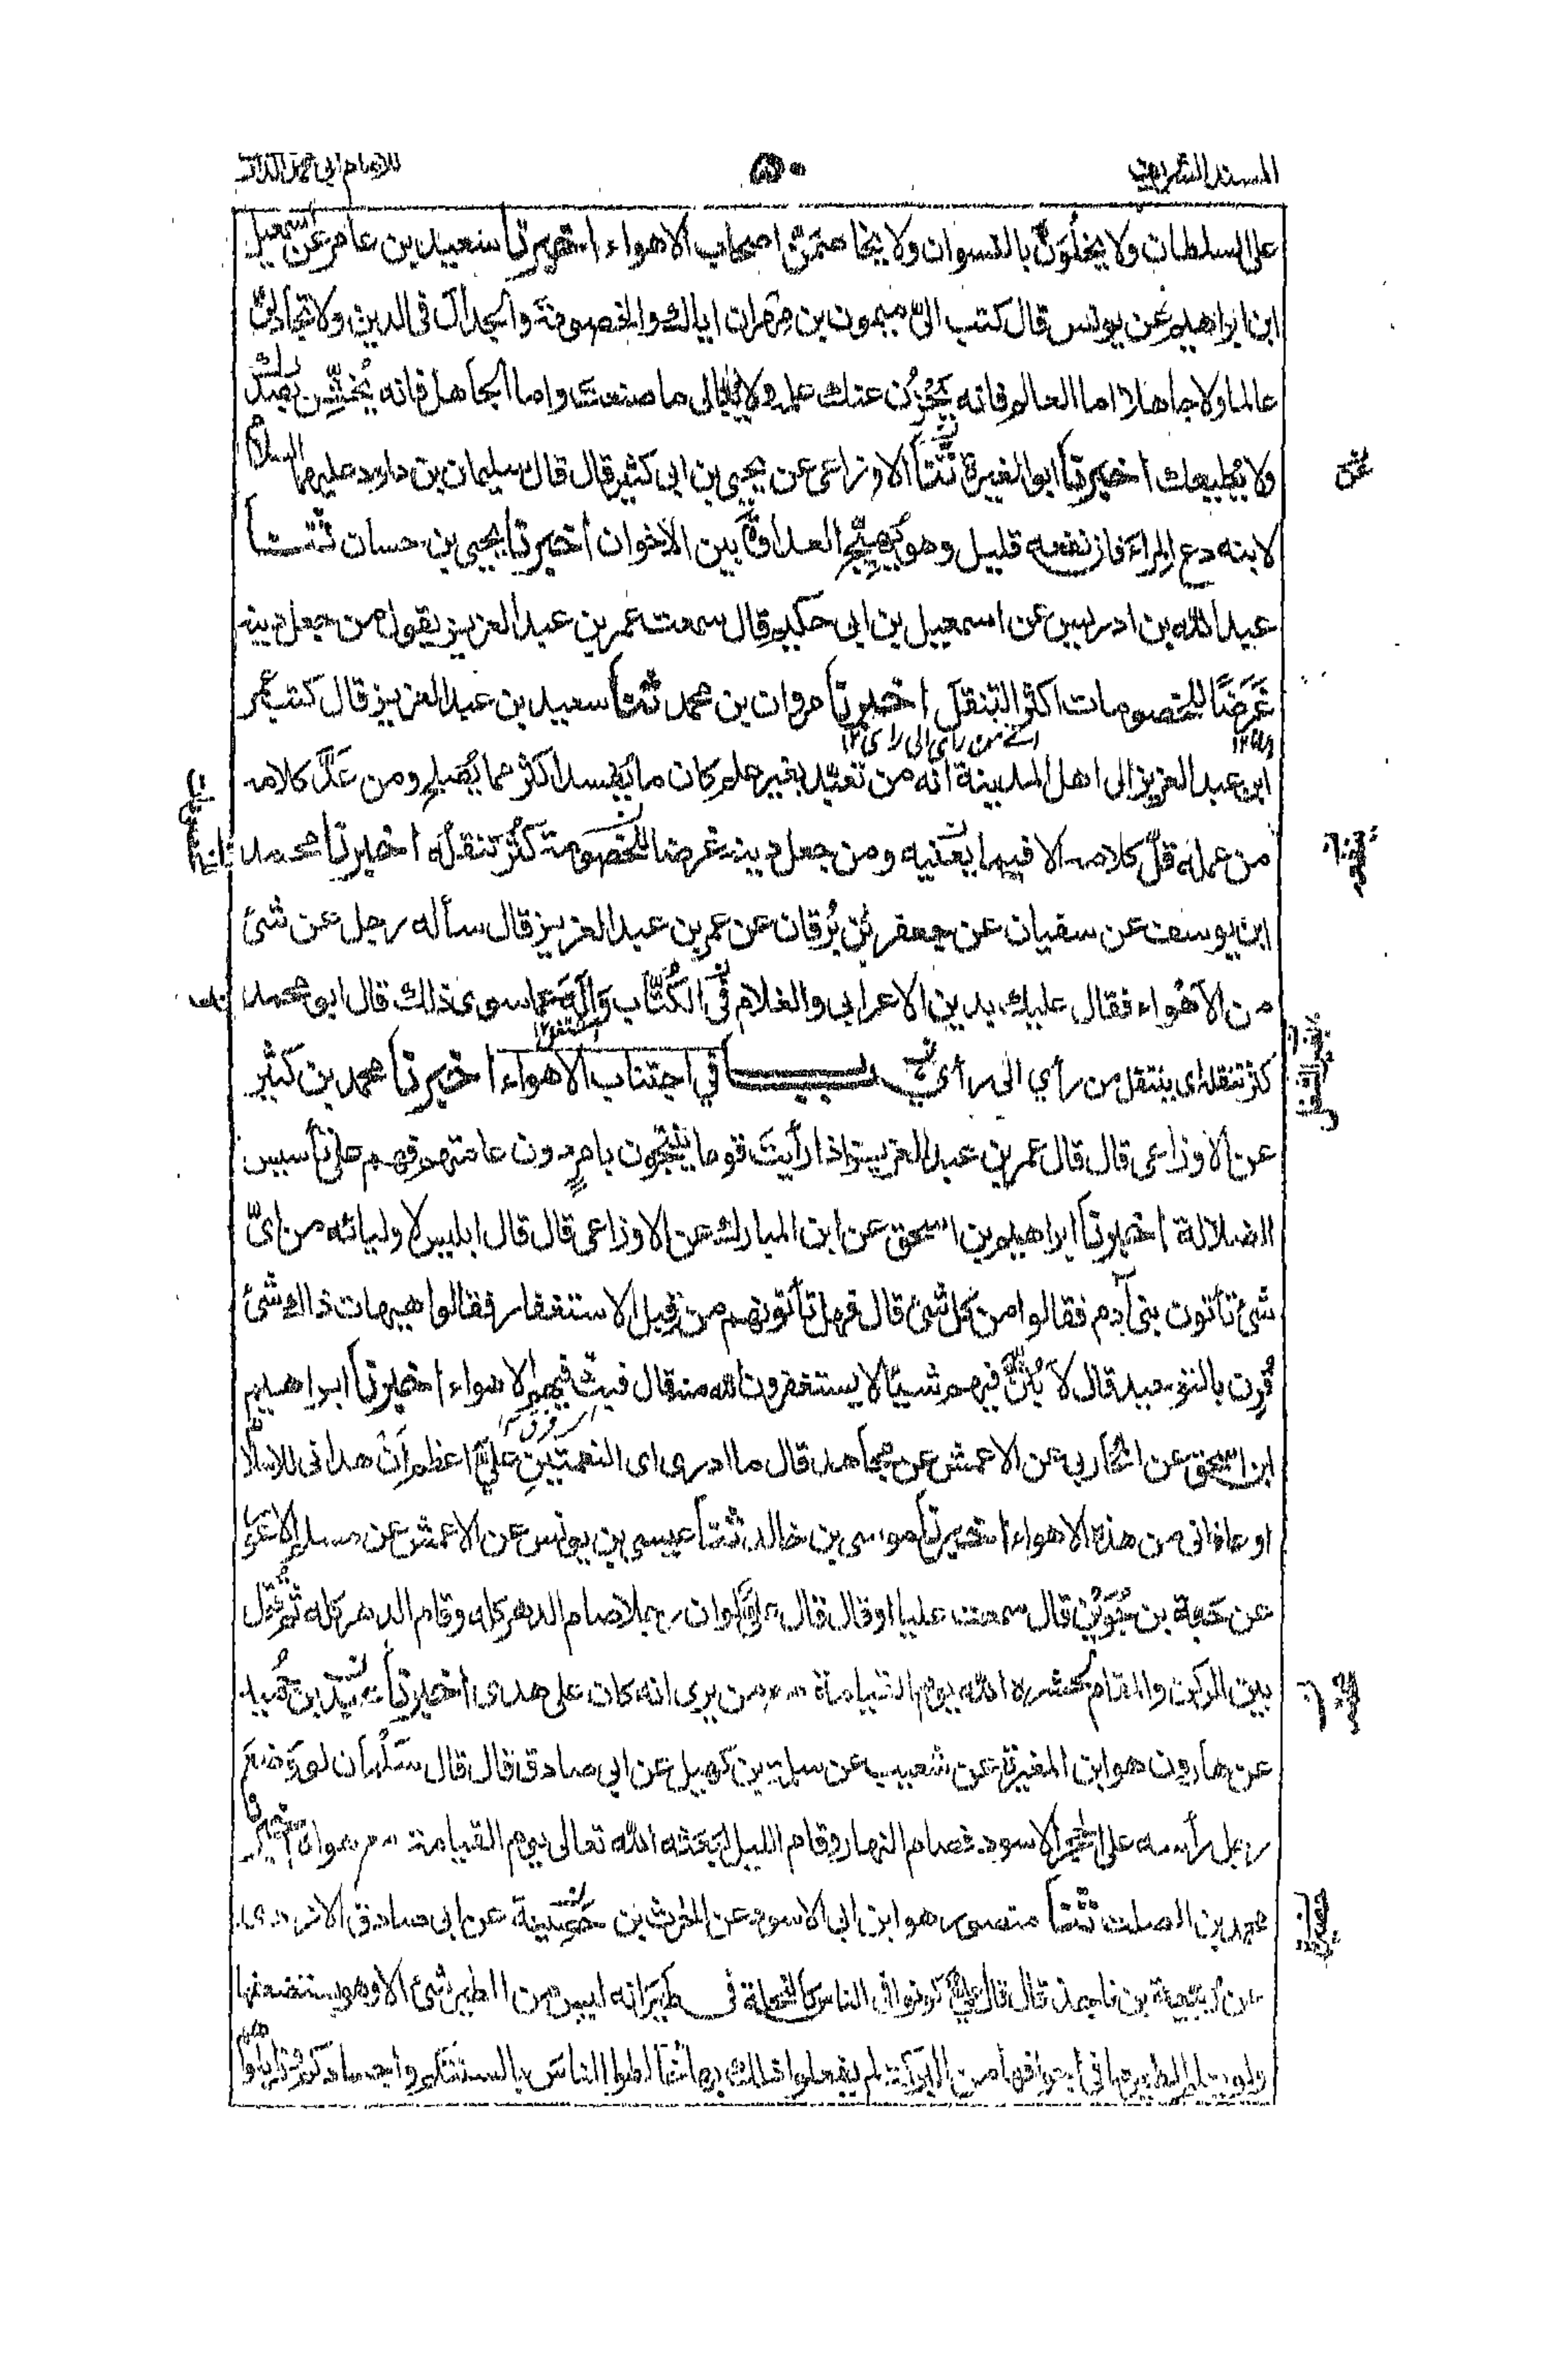 المسند الشريف ٥٠ للامام ابى محمد الدارمى
على السلطان ولا يخلُوَنَّ بالنسوان ولا يخاصمَنَّ اصحاب الاهواء اخبرنا سعيد بن عامر عن اسمعيل
ابن ابراهيم عن يونس قال كتب الىّ ميمون بن مِهران اياك والخصومةَ والجدالَ فى الدين ولا تجادلنَّ
عالما ولا جاهلا اما العالم فانه يَخْزُن عنك علمه ولا يبالى ما صنعتَ واما الجاهل فانه يُخشِّن بصدرك
ولا يُطيعك اخبرنا ابو المغيرة ثنا الاوزاعى عن يحيى بن ابى كثير قال قال سليمان بن داود عليهما السلام
لابنه دع المراءَ فان نفعه قليل وهو يُهيِّج العداوةَ بين الاخوان اخبرنا يحيى بن حسان ثنا
عبد الله بن ادريس عن اسمعيل بن ابى حكيم قال سمعت عمر بن عبد العزيز يقول من جعل دينه
غَرَضًا للخصومات اكثر التنقل اخبرنا مروان بن محمد ثنا سعيد بن عبد العزيز قال كتب عمر
اے من رأى الى رأى ١٢
ابن عبد العزيز الى اهل المدينة انه من تعبّد بغير علم كان ما يُفسد اكثر مما يُصلح ومن عَدَّ كلامه
من عمله قلّ كلامه الا فيما يعنيه ومن جعل دينه غرضا للخصومة كَثُر تنقلُه اخبرنا محمد
ابن يوسف عن سفيان عن جعفر بن بُرقان عن عمر بن عبد العزيز قال سأله رجل عن شئ
من الاهواء فقال عليك بدين الاعرابى والغلام فى الكُتَّاب وَالْهَ عما سوى ذلك قال ابو محمد
كثر تنقله اى ينتقل من رأي الى رأي باب فى اجتناب الاهواء اخبرنا محمد بن كثير
عن الاوزاعى قال قال عمر بن عبد العزيز اذا رأيتَ قوما ينتجون بامرٍ دون عامتهم فهم على تأسيس
الضلالة اخبرنا ابراهيم بن اسحق عن ابن المبارك عن الاوزاعى قال قال ابليس لاوليائه من اىّ
شئ تأتون بنى آدم فقالوا من كل شئ قال فهل تأتونهم من قِبل الاستغفار فقالوا هيهات ذاك شئ
قُرِن بالتوحيد قال لَاَبُثَّنَّ فيهم شيئا لا يستغفرون الله منه قال فبثَّ فيهم الاهواء اخبرنا ابراهيم
ابن اسحق عن المحاربى عن الاعمش عن مجاهد قال ما ادرى اى النعمتَين علىَّ اعظم اَنْ هدانى للاسلام
او عافانى من هذه الاهواء اخبرنا موسى بن خالد ثنا عيسى بن يونس عن الاعمش عن مسلم الاعور
عن حَبة بن جُوَيْن قال سمعت عليا او قال قال علىٌّ لو ان رجلا صام الدهر كله وقام الدهر كله ثم قُتل
بين الركن والمقام لحشره الله يوم القيامة مع من يرى انه كان على هدى اخبرنا محمد بن حُميد
عن هارون هو ابن المغيرة عن شعيب عن سلمة بن كهيل عن ابى صادق قال قال سَلْمان لو وَضع
رجل رأسه على الحجر الاسود فصام النهار وقام الليل لبَعثه الله تعالى يوم القيامة مع هواه اخبرنا
محمد بن الصلت ثنا منصور هو ابن ابى الاسود عن الحرث بن حَصِيرة عن ابى صادق الازدى
عن ربيعة بن ناجذ قال قال علىٌّ كونوا فى الناس كالنحلة فى الطير انه ليس من الطير شئ الا وهو يستضعفها
ولو يعلم الطير ما فى اجوافها من البركة لم يفعلوا ذلك بها خالطوا الناسَ بالسنتكم واجسادكم وزايلوا